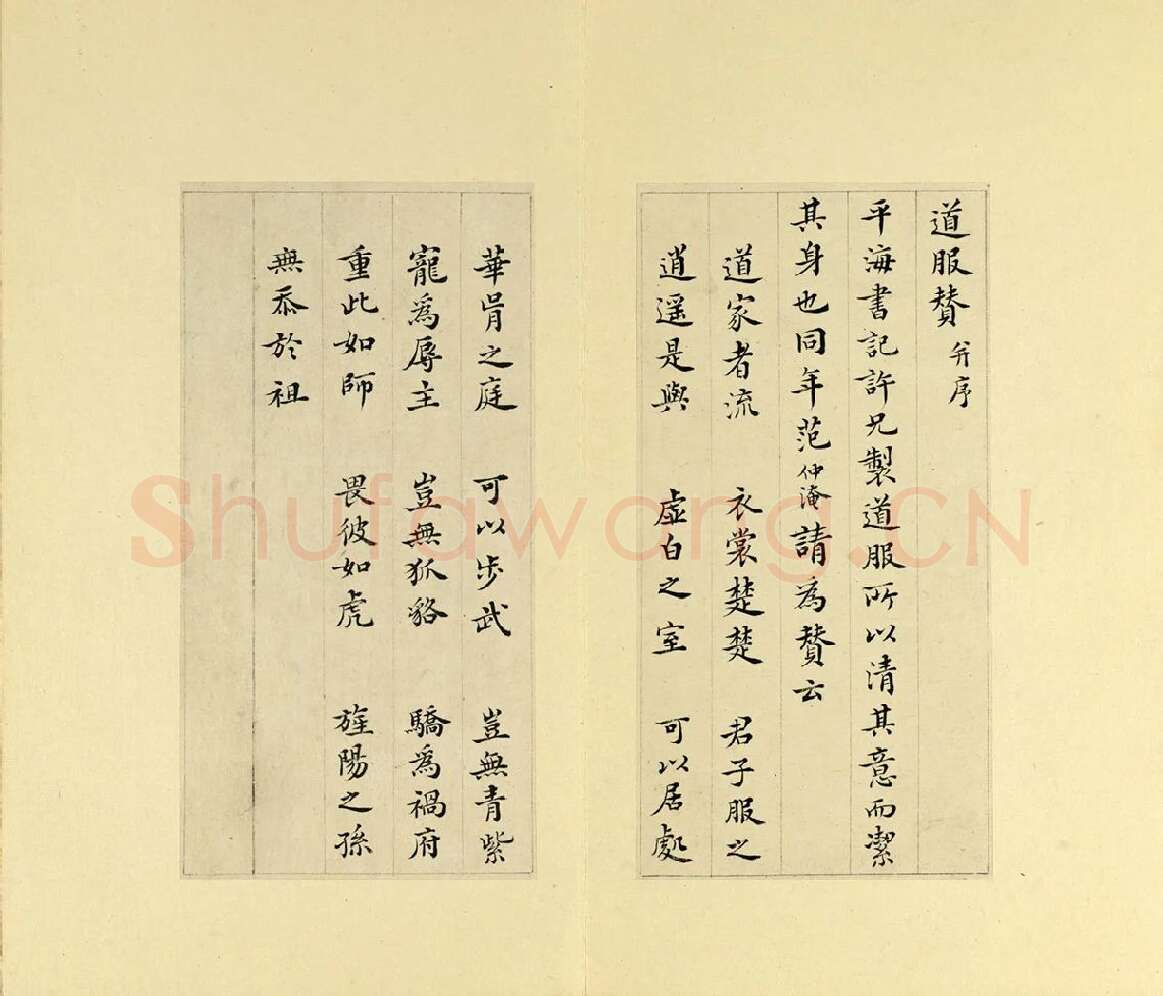 道服賛 并序
平海書記許兄製道服所以清其意而潔
其身也同年范仲淹請為賛云
道家者流 衣裳楚楚 君子服之
逍遥是與 虛白之室 可以居處
華胥之庭 可以步武 豈無青紫
寵為辱主 豈無狐貉 驕為禍府
重此如師 畏彼如虎 旌陽之孫
無忝於祖
Shufawang.CN